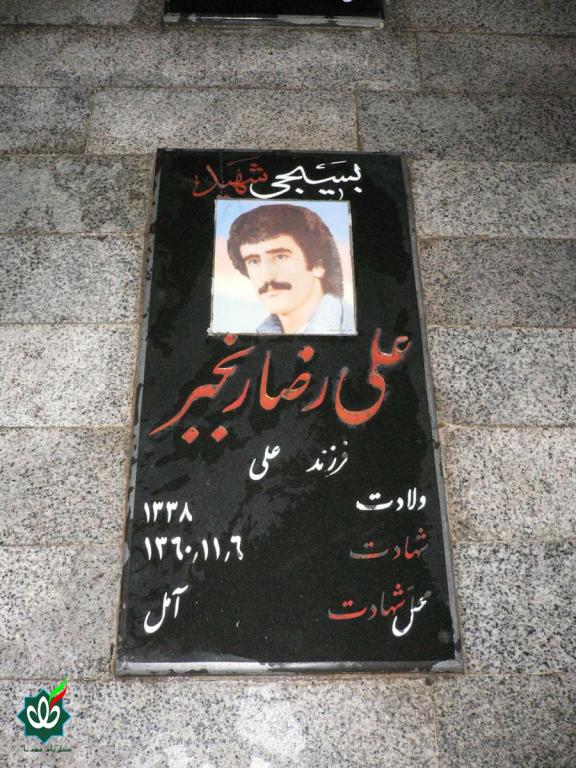 بسیجی شهید
علی رضا رنجبر
فرزند علی
ولادت ۱۳۳۸
شهادت ۱۳۶۰,۱۱,۶
محل شهادت آمل